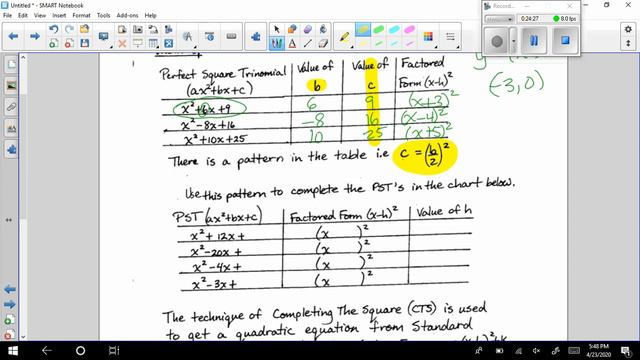 Untitled * - SMART Notebook
File Edit View Insert Format Tools Add-ons Help
Recorder...
00:24:27 8.0 fps
Perfect Square Trinomial (ax²+bx+c) Value of b Value of c Factored Form (x-h)²
x²+6x+9 6 9 (x+3)²
x²-8x+16 -8 16 (x-4)²
x²+10x+25 10 25 (x+5)²
(-3,0)
There is a pattern in the table i.e c = (b/2)²
Use this pattern to complete the PST's in the chart below.
PST (ax²+bx+c) Factored Form (x-h)² Value of h
x²+12x+ (x )²
x²-20x+ (x )²
x²-4x+ (x )²
x²-3x+ (x )²
The technique of Completing The Square (CTS) is used
to get a quadratic equation from Standard
5:48 PM
4/23/2020